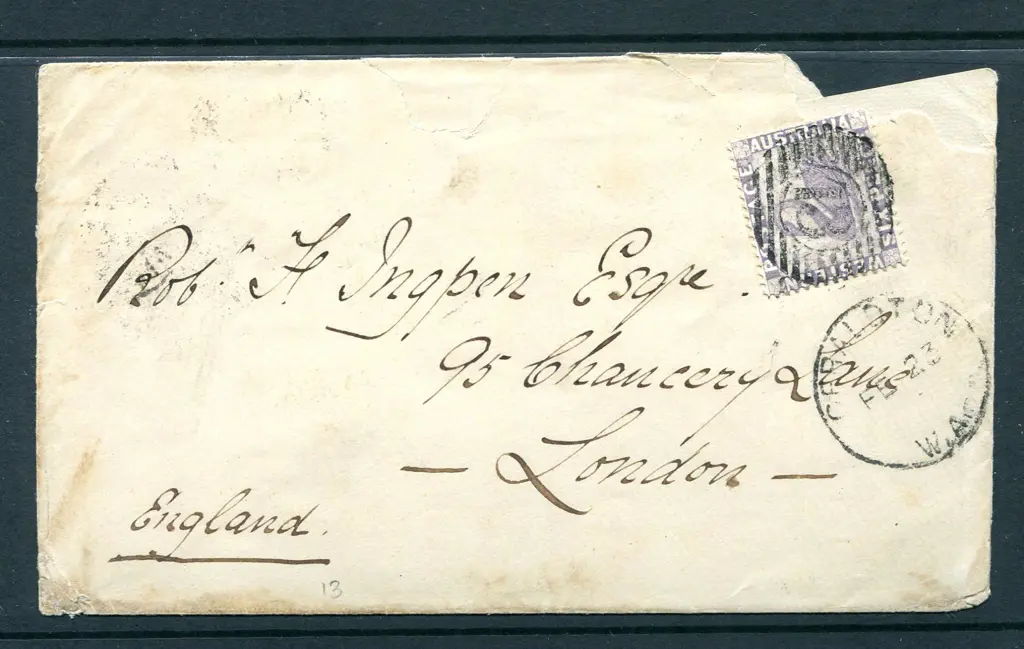 WESTERN AUSTRALIA
Robt H Ingpen Esqre
95 Chancery Lane
London
England.
GERALDTON
FE 23
W.A
13